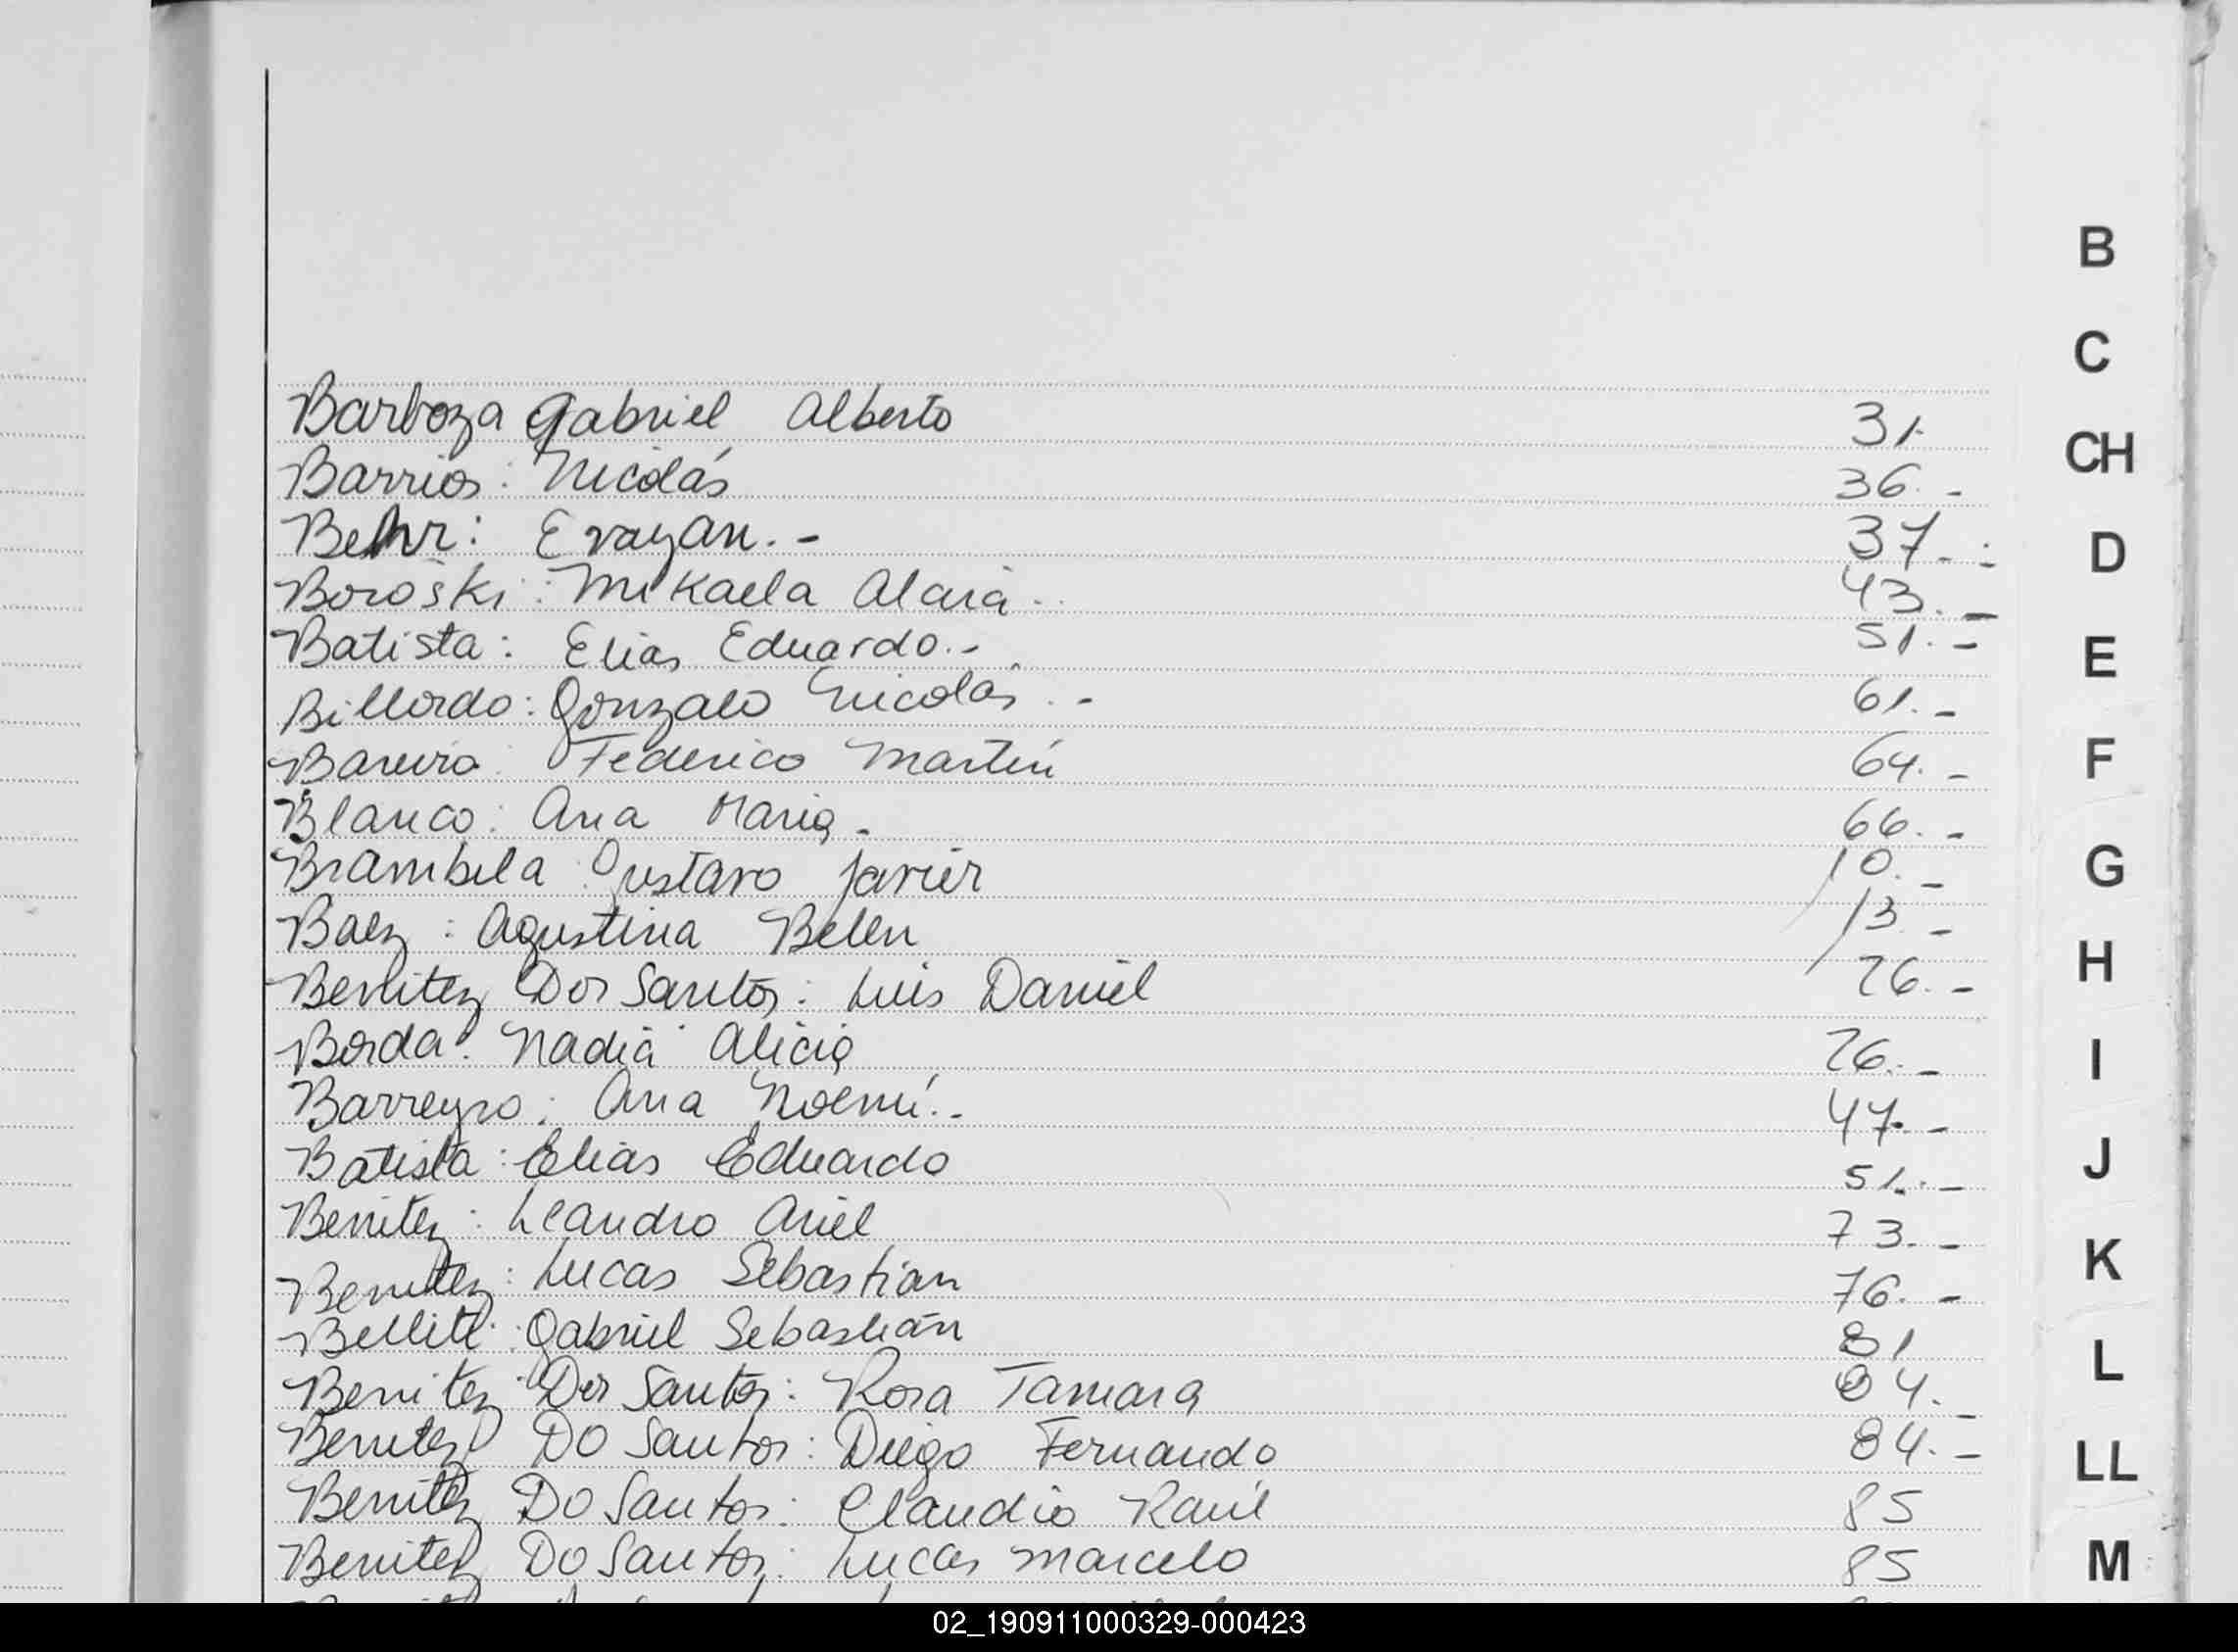 B
C
CH
D
E
F
G
H
I
J
K
L
LL
M
Barboza Gabriel Alberto 31.
Barrios: Nicolás 36.-
Behr: Erayan.- 37.-
Boroski: Mikaela Alaia 43.-
Batista: Elias Eduardo.- 51.-
Billordo: Gonzalo Nicolás.- 61.-
Bareiro: Federico Martín 64.-
Blanco: Ana Maria.- 66.-
Brambila: Gustavo Javier 10.-
Baez: Agustina Belen 13.-
Benitez Dos Santos: Luis Daniel 26.-
Borda: Nadia Alicia 26.-
Barreyro: Ana Noemí.- 47.-
Batista: Elias Eduardo 51.-
Benitez: Leandro Ariel 73.-
Benitez: Lucas Sebastian 76.-
Gabriel Sebastián 81
Benitez Dos Santos: Rosa Tamara 84.-
Benitez Do Santos: Diego Fernando 84.-
Benitez Do Santos: Claudio Raúl 85
Benitez Do Santos: Lucas Marcelo 85
02_190911000329-000423